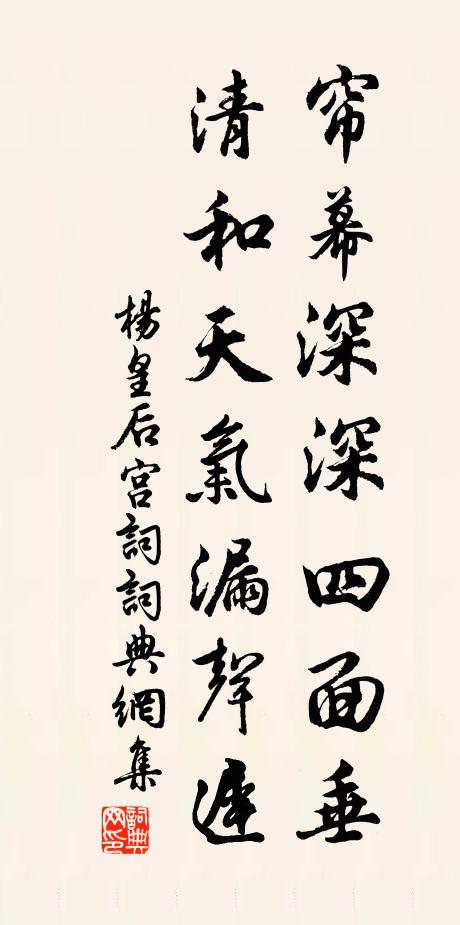 帘幕深深四面垂
清和天氣漏聲遲
楊皇后宫詞詞典網集
詞典網印